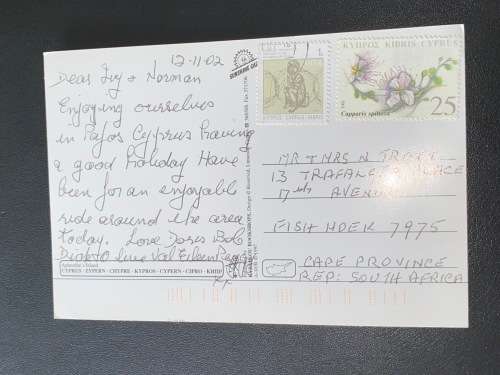 12-11-02
Dear Ivy + Norman
Enjoying ourselves
in Pafos Cyprus having
a good holiday Have
been for an enjoyable
ride around the area
today. Love Doris Bob
Dick Val Eileen
Aphrodite's Island
CYPRUS - ZYPERN - CHYPRE - KYPROS - CYPERN - CIPRO - КИПР
SUNSHINE
ΚΥΠΡΟΣ KIBRIS CYPRUS
Capparis spinosa
25
MR + MRS N
13 TRAFALGAR PLACE
17th AVENUE
FISH HOEK 7975
CAPE PROVINCE
REP: SOUTH AFRICA